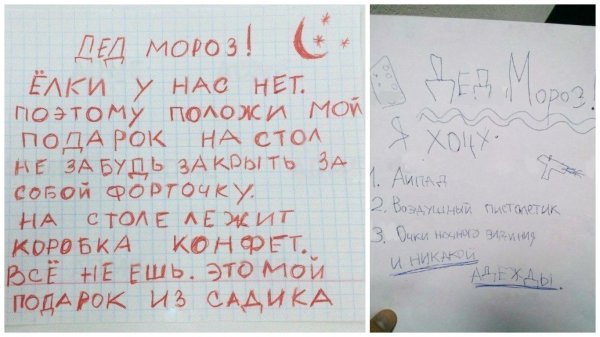 ДЕД МОРОЗ!
ЁЛКИ У НАС НЕТ.
ПОЭТОМУ ПОЛОЖИ МОЙ
ПОДАРОК НА СТОЛ
НЕ ЗАБУДЬ ЗАКРЫТЬ ЗА
СОБОЙ ФОРТОЧКУ.
НА СТОЛЕ ЛЕЖИТ
КОРОБКА КОНФЕТ.
ВСЁ НЕ ЕШЬ. ЭТО МОЙ
ПОДАРОК ИЗ САДИКА
Дед Мороз!
Я хочу.
1. Айпад
2. Воздушный пистолетик
3. Очки ночного
и никакой
адежды.